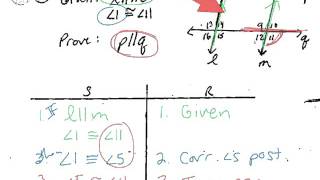 Given: l||m
∠1 ≅ ∠11
Prove: p||q
13 14
16 15
9 10
12 11
q
l
m
S R
1. l||m 1. Given
∠1 ≅ ∠11
∠1 ≅ ∠5 2. Corr. ∠s post.